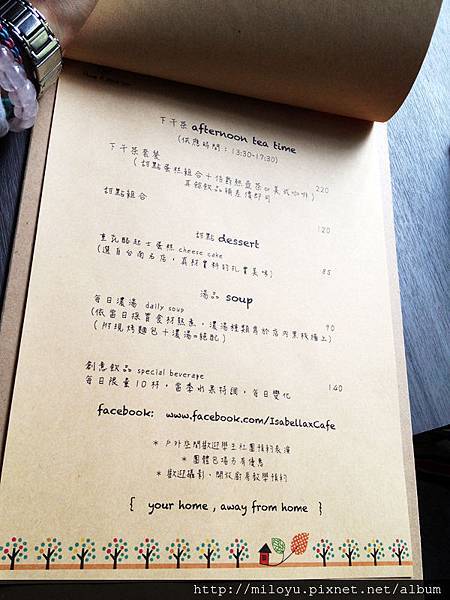 下午茶 afternoon tea time
(供應時間：13:30-17:30)
下午茶套餐
(甜點蛋糕組合＋伯爵熱壺茶or美式咖啡) 220
其餘飲品補差價即可
甜點組合 120
甜點 dessert
重乳酪起士蛋糕 cheese cake
(選自台南名店，真材實料的扎實美味) 85
湯品 soup
每日濃湯 daily soup
(依當日採買食材熬煮，濃湯種類寫於店內黑板牆上) 90
(附現烤麵包＋濃湯=絕配)
創意飲品 special beverage 140
每日限量10杯，當季水果特調，每日變化
facebook: www.facebook.com/IsabellaxCafe
＊戶外空間歡迎學生社團預約表演
＊團體包場另有優惠
＊歡迎攝影、開放廚房教學預約
{ your home , away from home }
http://miloyu.pixnet.net/album